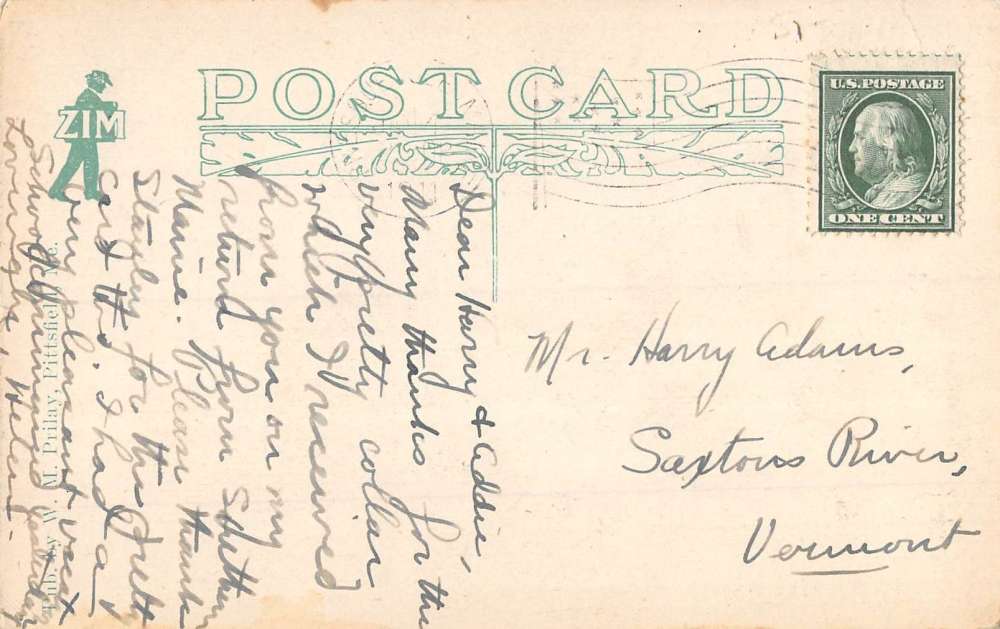 POST CARD
ZIM
U.S. POSTAGE
ONE CENT
Dear Harry & Addie,
Many thanks for the
very pretty collar
which I received
from you on my
return from
Maine. Please thank
Stanley for the
card &. I had a
very pleasant
School Commenced
Lovingly, Helen.
Pub. by W. M. Prilay, Pittsfield, Me.
Mr. Harry Adams,
Saxtons River,
Vermont